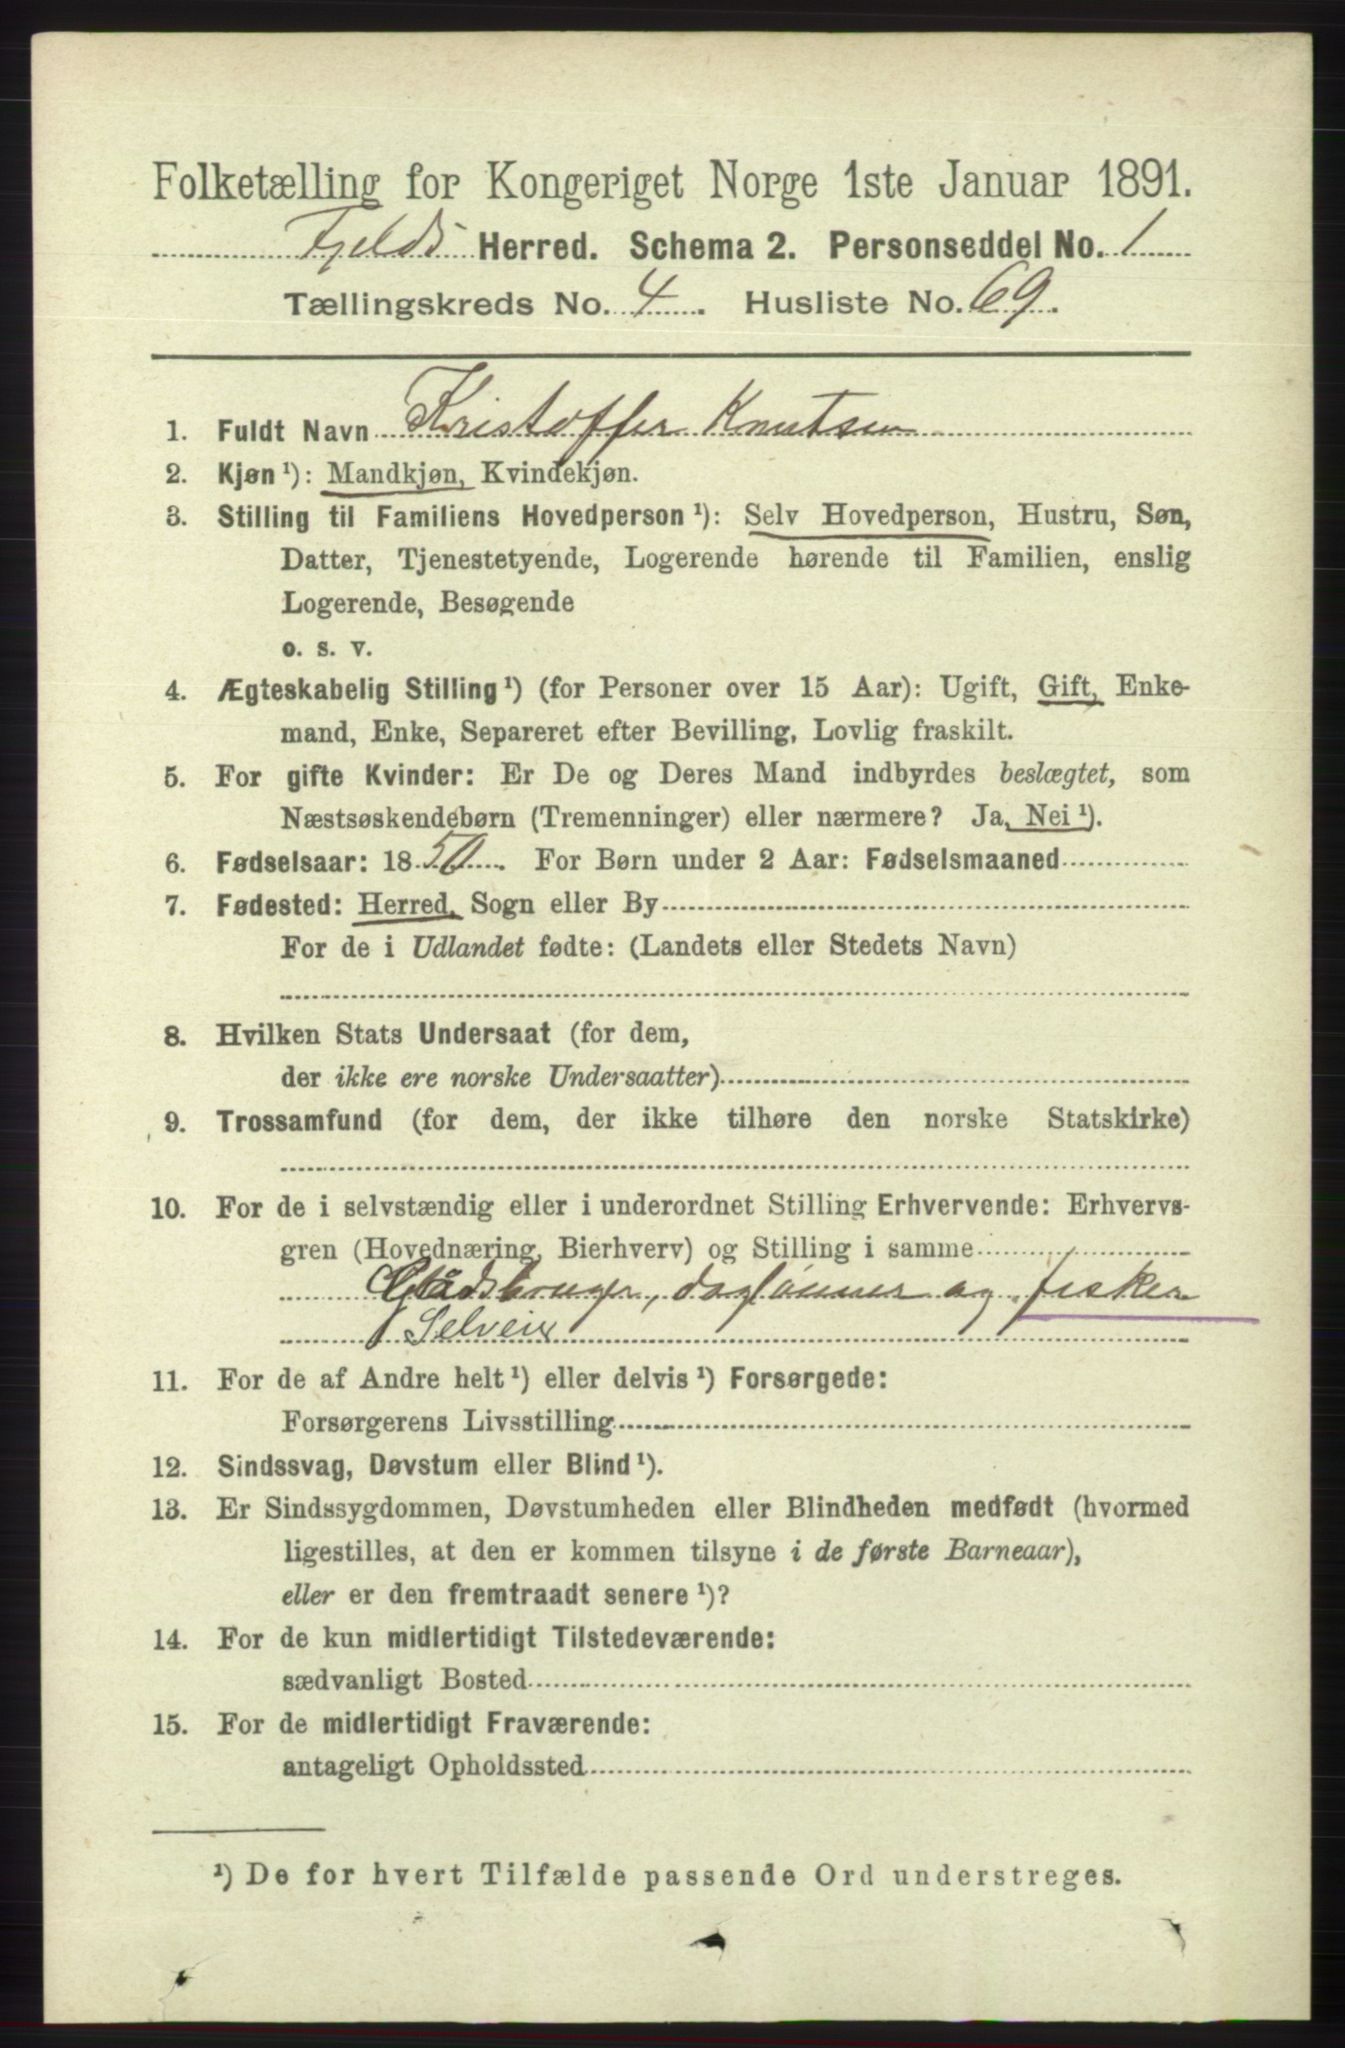 Folketælling for Kongeriget Norge 1ste Januar 1891.
Fjelds Herred. Schema 2. Personseddel No. 1
Tællingskreds No. 4. Husliste No. 69.
1. Fuldt Navn Kristoffer Knutsen
2. Kjøn ¹): Mandkjøn, Kvindekjøn.
3. Stilling til Familiens Hovedperson ¹): Selv Hovedperson, Hustru, Søn,
Datter, Tjenestetyende, Logerende hørende til Familien, enslig
Logerende, Besøgende
o. s. v.
4. Ægteskabelig Stilling ¹) (for Personer over 15 Aar): Ugift, Gift, Enke-
mand, Enke, Separeret efter Bevilling, Lovlig fraskilt.
5. For gifte Kvinder: Er De og Deres Mand indbyrdes beslægtet, som
Næstsøskendebørn (Tremenninger) eller nærmere? Ja, Nei ¹).
6. Fødselsaar: 1850. For Børn under 2 Aar: Fødselsmaaned
7. Fødested: Herred, Sogn eller By
For de i Udlandet fødte: (Landets eller Stedets Navn)
8. Hvilken Stats Undersaat (for dem,
der ikke ere norske Undersaatter)
9. Trossamfund (for dem, der ikke tilhøre den norske Statskirke)
10. For de i selvstændig eller i underordnet Stilling Erhvervende: Erhvervs-
gren (Hovednæring, Bierhverv) og Stilling i samme
Gårdsbruger, daglønner og fisker
Selveier
11. For de af Andre helt ¹) eller delvis ¹) Forsørgede:
Forsørgerens Livsstilling
12. Sindssvag, Døvstum eller Blind ¹).
13. Er Sindssygdommen, Døvstumheden eller Blindheden medfødt (hvormed
ligestilles, at den er kommen tilsyne i de første Barneaar),
eller er den fremtraadt senere ¹)?
14. For de kun midlertidigt Tilstedeværende:
sædvanligt Bosted
15. For de midlertidigt Fraværende:
antageligt Opholdssted
¹) De for hvert Tilfælde passende Ord understreges.